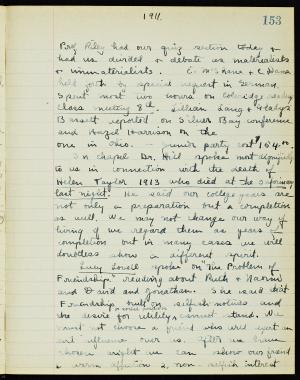 1911.
153
Prof. Riley had our quiz section today &
had us divided & debate as materialists
& immaterialists. E. McShane & C Hana
held forth by special request in German.
Spent most two hours on college reading
Class meeting 8th. Lillian Lang & Gladys
Bassett reported on Silver Bay conference
and Hazel Harrison on the
one in Ohio. — Junior party cost 164.00
In chapel Dr. Hill spoke most dignifiedly
to us in connection with the death of
Helen Taylor 1913 who died at the Infirmary
last night. He said our college years are
not only a preparation but a completion
as well. We may not change our way of
living if we regard them as years of
completion but in many cases we will
doubtless show a different spirit.
Lucy Lovell spoke on "The Problem of
Friendship," reading about Ruth & Naomi
and David and Jonathan. She said that
Friendship built on selfish motives and
the desire for utility cannot stand. We
must not choose a friend who will exert an
evil influence over us. After we have
chosen aright we can show our friend
a warm affection &, non selfish interest